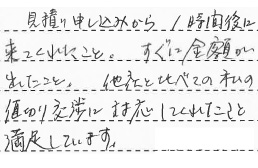 見積り申し込みから、1時間後に
来てくれたこと。すぐに金額が
出たこと。他社と比べての私の
値切り交渉に対応してくれたこと
満足しています。